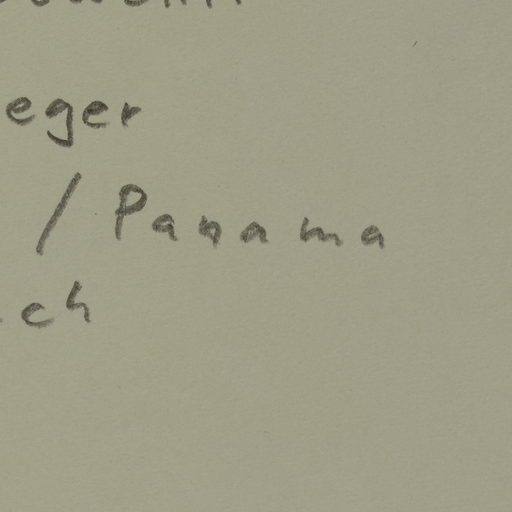 eger
/ Panama
ch